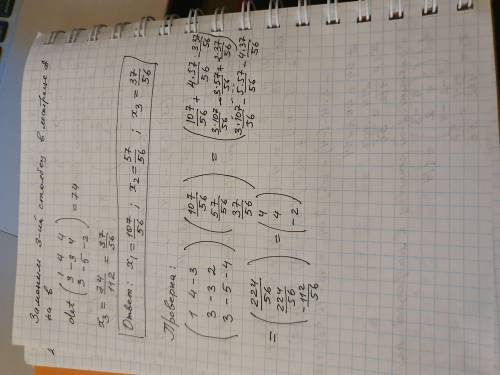 Заменим 3-ий столбец в матрице A
на B
det ( 1 4 4
3 -3 4
3 -5 -2 ) = 74
x₃ = 74/112 = 37/56
Ответ: x₁ = 107/56 ; x₂ = 57/56 ; x₃ = 37/56
Проверка:
( 1 4 -3
3 -3 2
3 -5 -4 ) ( 107/56
57/56
37/56 ) = ( 107/56 + 4·57/56 - 3·37/56
3·107/56 - 3·57/56 + 2·37/56
3·107/56 - 5·57/56 - 4·37/56 )
= ( 224/56
224/56
-112/56 ) = ( 4
4
-2 )